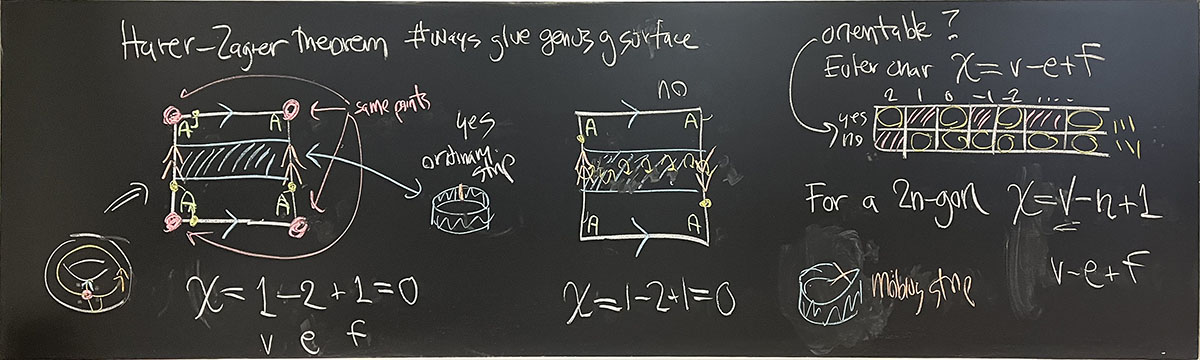 Harer-Zagier theorem #ways glue genus g surface
same points
A A
A A
yes
ordinary strip
χ = 1 - 2 + 1 = 0
v e f
no
A A
A A
χ = 1 - 2 + 1 = 0
orientable?
Euler char χ = v - e + f
2 1 0 -1 -2 ....
yes
no
For a 2n-gon χ = v - n + 1
v - e + f
möbius strip